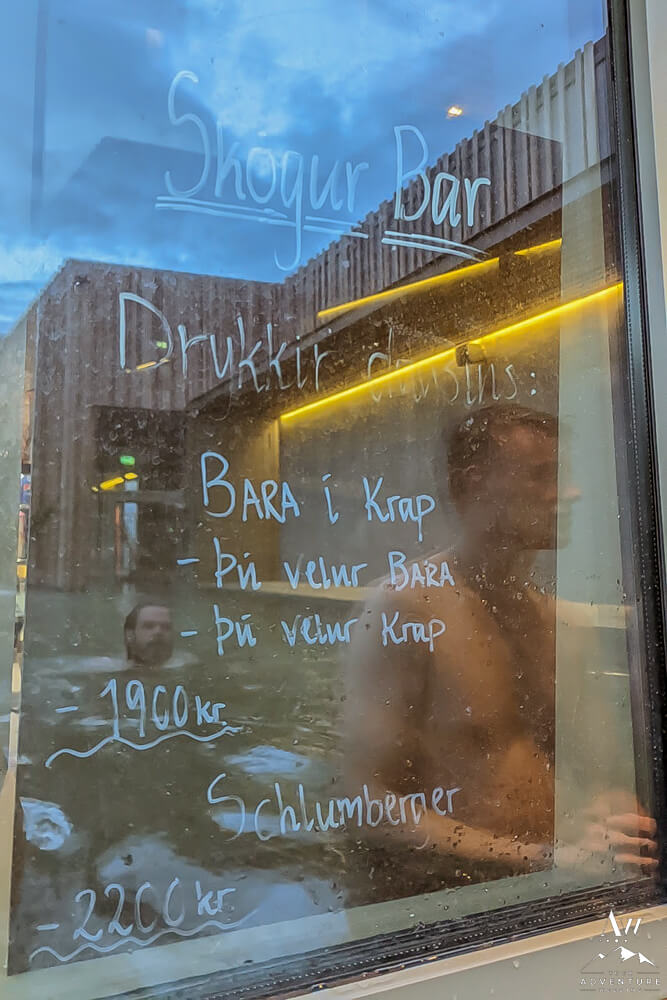 Skógur Bar
Drykkir dagsins:
BARA í Krap
- Þú velur BÁRA
- Þú velur Krap
- 1900 kr
Schlumberger
- 2200 kr
ADVENTURE